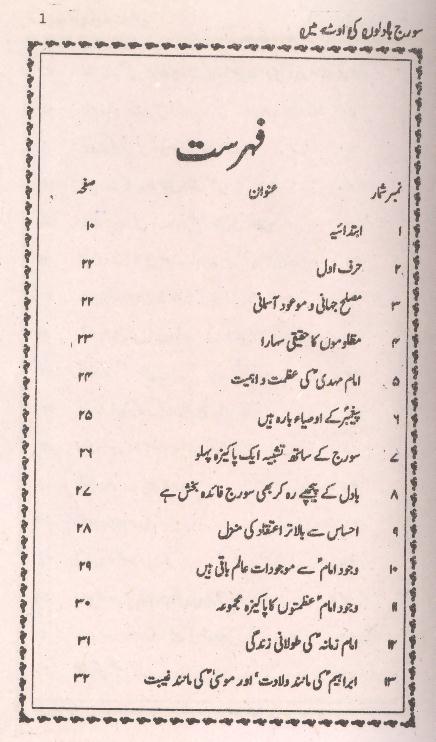 سورج بادلوں کی اوٹ میں
1
فہرست
نمبر شمار عنوان صفحہ
۱ ابتدائیہ ۱۰
۲ حرف اول ۲۲
۳ مصلح جہانی و موعود آسمانی ۲۲
۴ مظلوموں کا حقیقی سہارا ۲۳
۵ امام مہدیؑ کی عظمت و اہمیت ۲۴
۶ پیغمبرؐ کے اوصیاء بارہ ہیں ۲۵
۷ سورج کے ساتھ تشبیہ ایک پاکیزہ پہلو ۲۶
۸ بادل کے پیچھے رہ کر بھی سورج فائدہ بخش ہے ۲۷
۹ احساس سے بالاتر اعتقاد کی منزل ۲۸
۱۰ وجود امامؑ سے موجودات عالم باقی ہیں ۲۹
۱۱ وجود امامؑ عظمتوں کا پاکیزہ مجموعہ ۳۰
۱۲ امام زمانہؑ کی طولانی زندگی ۳۱
۱۳ ابراہیمؑ کی مانند ولادت‘ اور موسیٰؑ کی مانند غیبت ۳۲